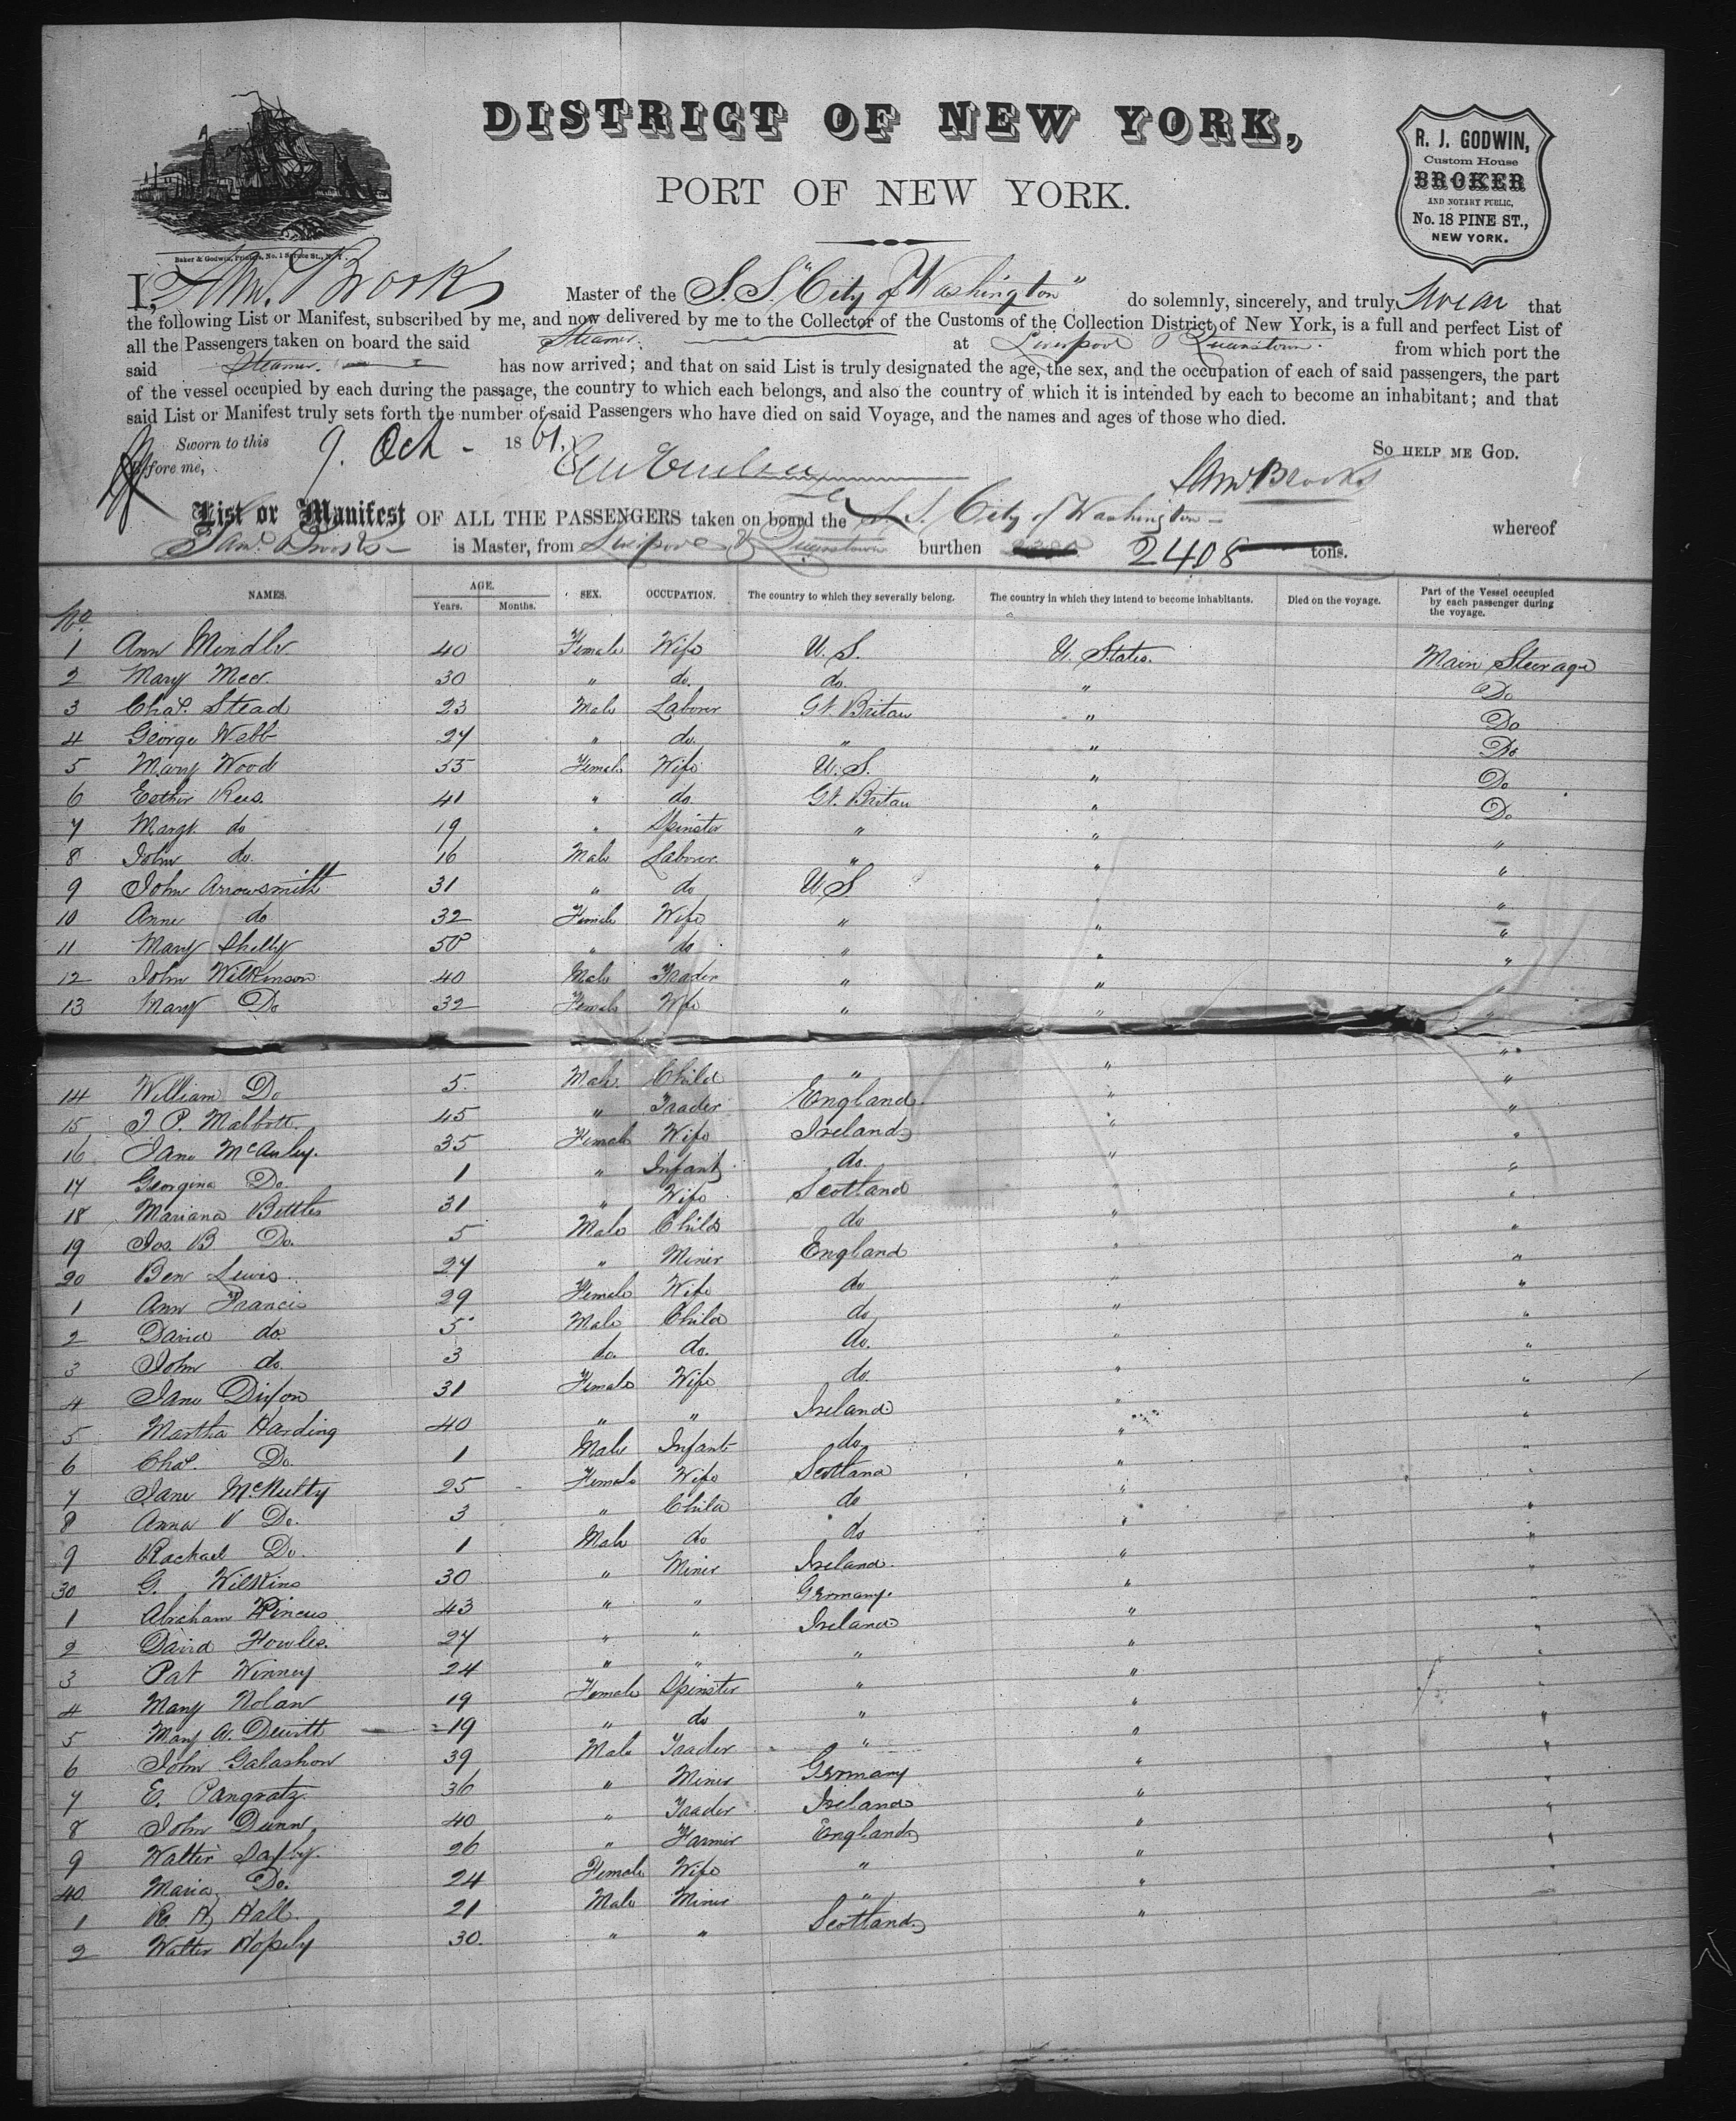 DISTRICT OF NEW YORK,
PORT OF NEW YORK.
Baker & Godwin, Printers, No. 1 Spruce St., N.Y.
R. J. GODWIN,
Custom House
BROKER
AND NOTARY PUBLIC,
No. 18 PINE ST.,
NEW YORK.
I, Saml. Brooks Master of the S.S. "City of Washington" do solemnly, sincerely, and truly swear that
the following List or Manifest, subscribed by me, and now delivered by me to the Collector of the Customs of the Collection District of New York, is a full and perfect List of
all the Passengers taken on board the said Steamer. at Liverpool & Queenstown. from which port the
said Steamer. has now arrived; and that on said List is truly designated the age, the sex, and the occupation of each of said passengers, the part
of the vessel occupied by each during the passage, the country to which each belongs, and also the country of which it is intended by each to become an inhabitant; and that
said List or Manifest truly sets forth the number of said Passengers who have died on said Voyage, and the names and ages of those who died.
Sworn to this 9. Oct - 1861. So HELP ME GOD.
Before me, Saml Brooks
List or Manifest OF ALL THE PASSENGERS taken on board the S.S. City of Washington whereof
Saml. Brooks is Master, from Liverpool & Queenstown burthen 2408 tons.
No. NAMES. AGE. Years. Months. SEX. OCCUPATION. The country to which they severally belong. The country in which they intend to become inhabitants. Died on the voyage. Part of the Vessel occupied by each passenger during the voyage.
1 Ann Mindlr 40 Female Wife U.S. U. States. Main Steerage
2 Mary Meer 30 " do. do. " Do
3 Chas. Stead 23 Male Laborer Gt. Britan " Do
4 George Webb 27 " do. " " Do
5 Mary Wood 35 Female Wife U.S. " Do
6 Esther Rees. 41 " do Gt. Britan " Do
7 Margt. do 19 " Spinster " " "
8 John do. 16 Male Laborer. " " "
9 John Arrowsmith 31 " do U.S. " "
10 Anne do 32 Female Wife " " "
11 Mary Shelly 50 " do " " "
12 John Wilkinson 40 Male Trader " " "
13 Mary Do 32 Female Wife " " "
14 William Do 5. Male. Child " " "
15 J. P. Malbott. 45 " Trader England " "
16 Jane McAuley. 35 Female Wife Ireland " "
17 Georgina Do. 1 " Infant do. " "
18 Mariana Bettles 31 " Wife Scotland " "
19 Jos. B Do. 5 Male Child do " "
20 Ben Lewis. 27 " Miner England " "
1 Ann Francis 29 Female Wife do " "
2 David do. 5 Male Child do " "
3 John do. 3 do. do. do. " "
4 Jane Dixon 31 Female Wife do " "
5 Martha Harding 40 " " Ireland. " "
6 Chas. Do. 1 Male Infant do " "
7 Jane McNulty 25 Female Wife Scotland " "
8 Anna V Do. 3 " Child do " "
9 Rachael Do. 1 Male do do " "
30 G. Wilkins 30 " Miner Ireland " "
1 Abraham Pincus 43 " " Germany. " "
2 David Fowles. 27 " " Ireland " "
3 Pat Kinney 24 " " " " "
4 Mary Nolan 19 Female Spinster " " "
5 Mary A. Dewitt 19 " do " " "
6 John Galashow 39 Male Trader " " "
7 E. Pangratz 36 " Miner Germany " "
8 John Dunn 40 " Trader Ireland " "
9 Walter Saxby. 26 " Farmer England " "
40 Maria Do. 24 Female Wife " " "
1 R. H. Hall 21 Male Miner " "
2 Walter Hopely 30. " " Scotland